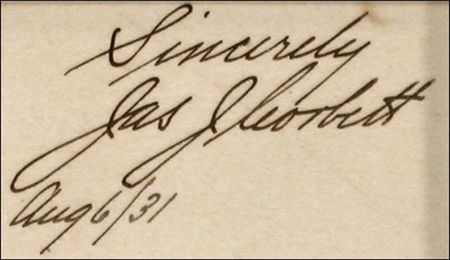 Sincerely
Jas J Corbett
Aug 6/31